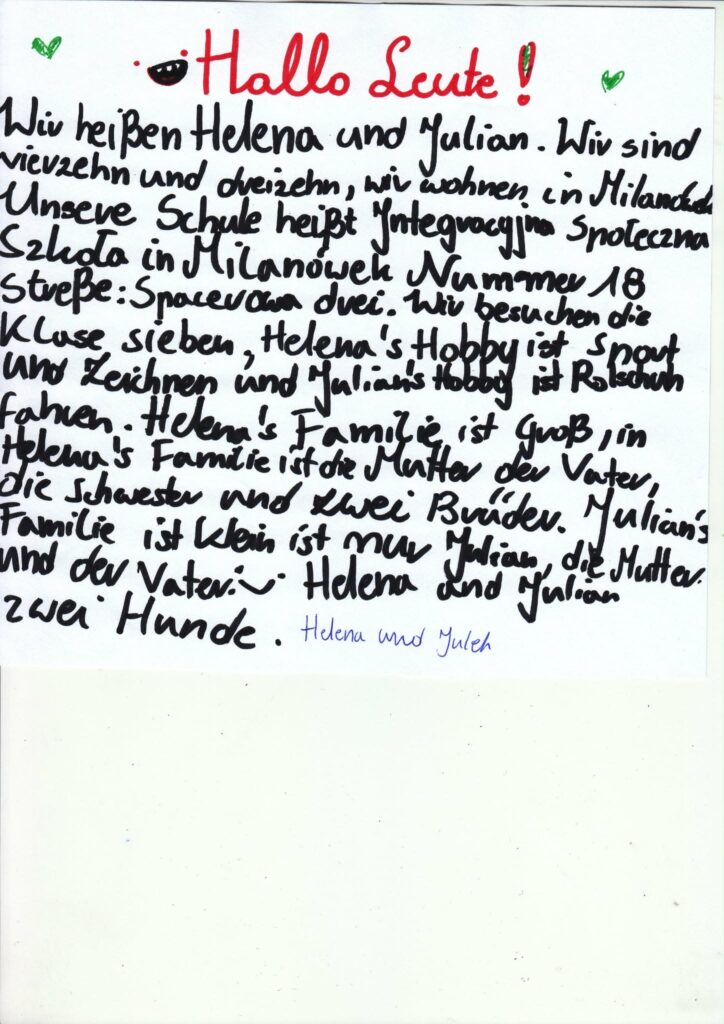 Hallo Leute!
Wir heißen Helena und Julian. Wir sind
vierzehn und dreizehn, wir wohnen in Milanówek
Unsere Schule heißt Jntegracyjna Społeczna
Szkoła in Milanówek Nummer 18
Streße: Spacerowa drei. Wir besuchen die
Klase sieben, Helena's Hobby ist Sport
und Zeichnen und Julian's Hobby ist Rolschuh
fahren. Helena's Familie ist Groß, in
Helena's Familie ist die Mutter der Vater,
die Schwester und zwei Brüder. Julian's
Familie ist klein ist nur Julian, die Mutter
und der Vater. Helena und Julian
zwei Hunde. Helena und Julek